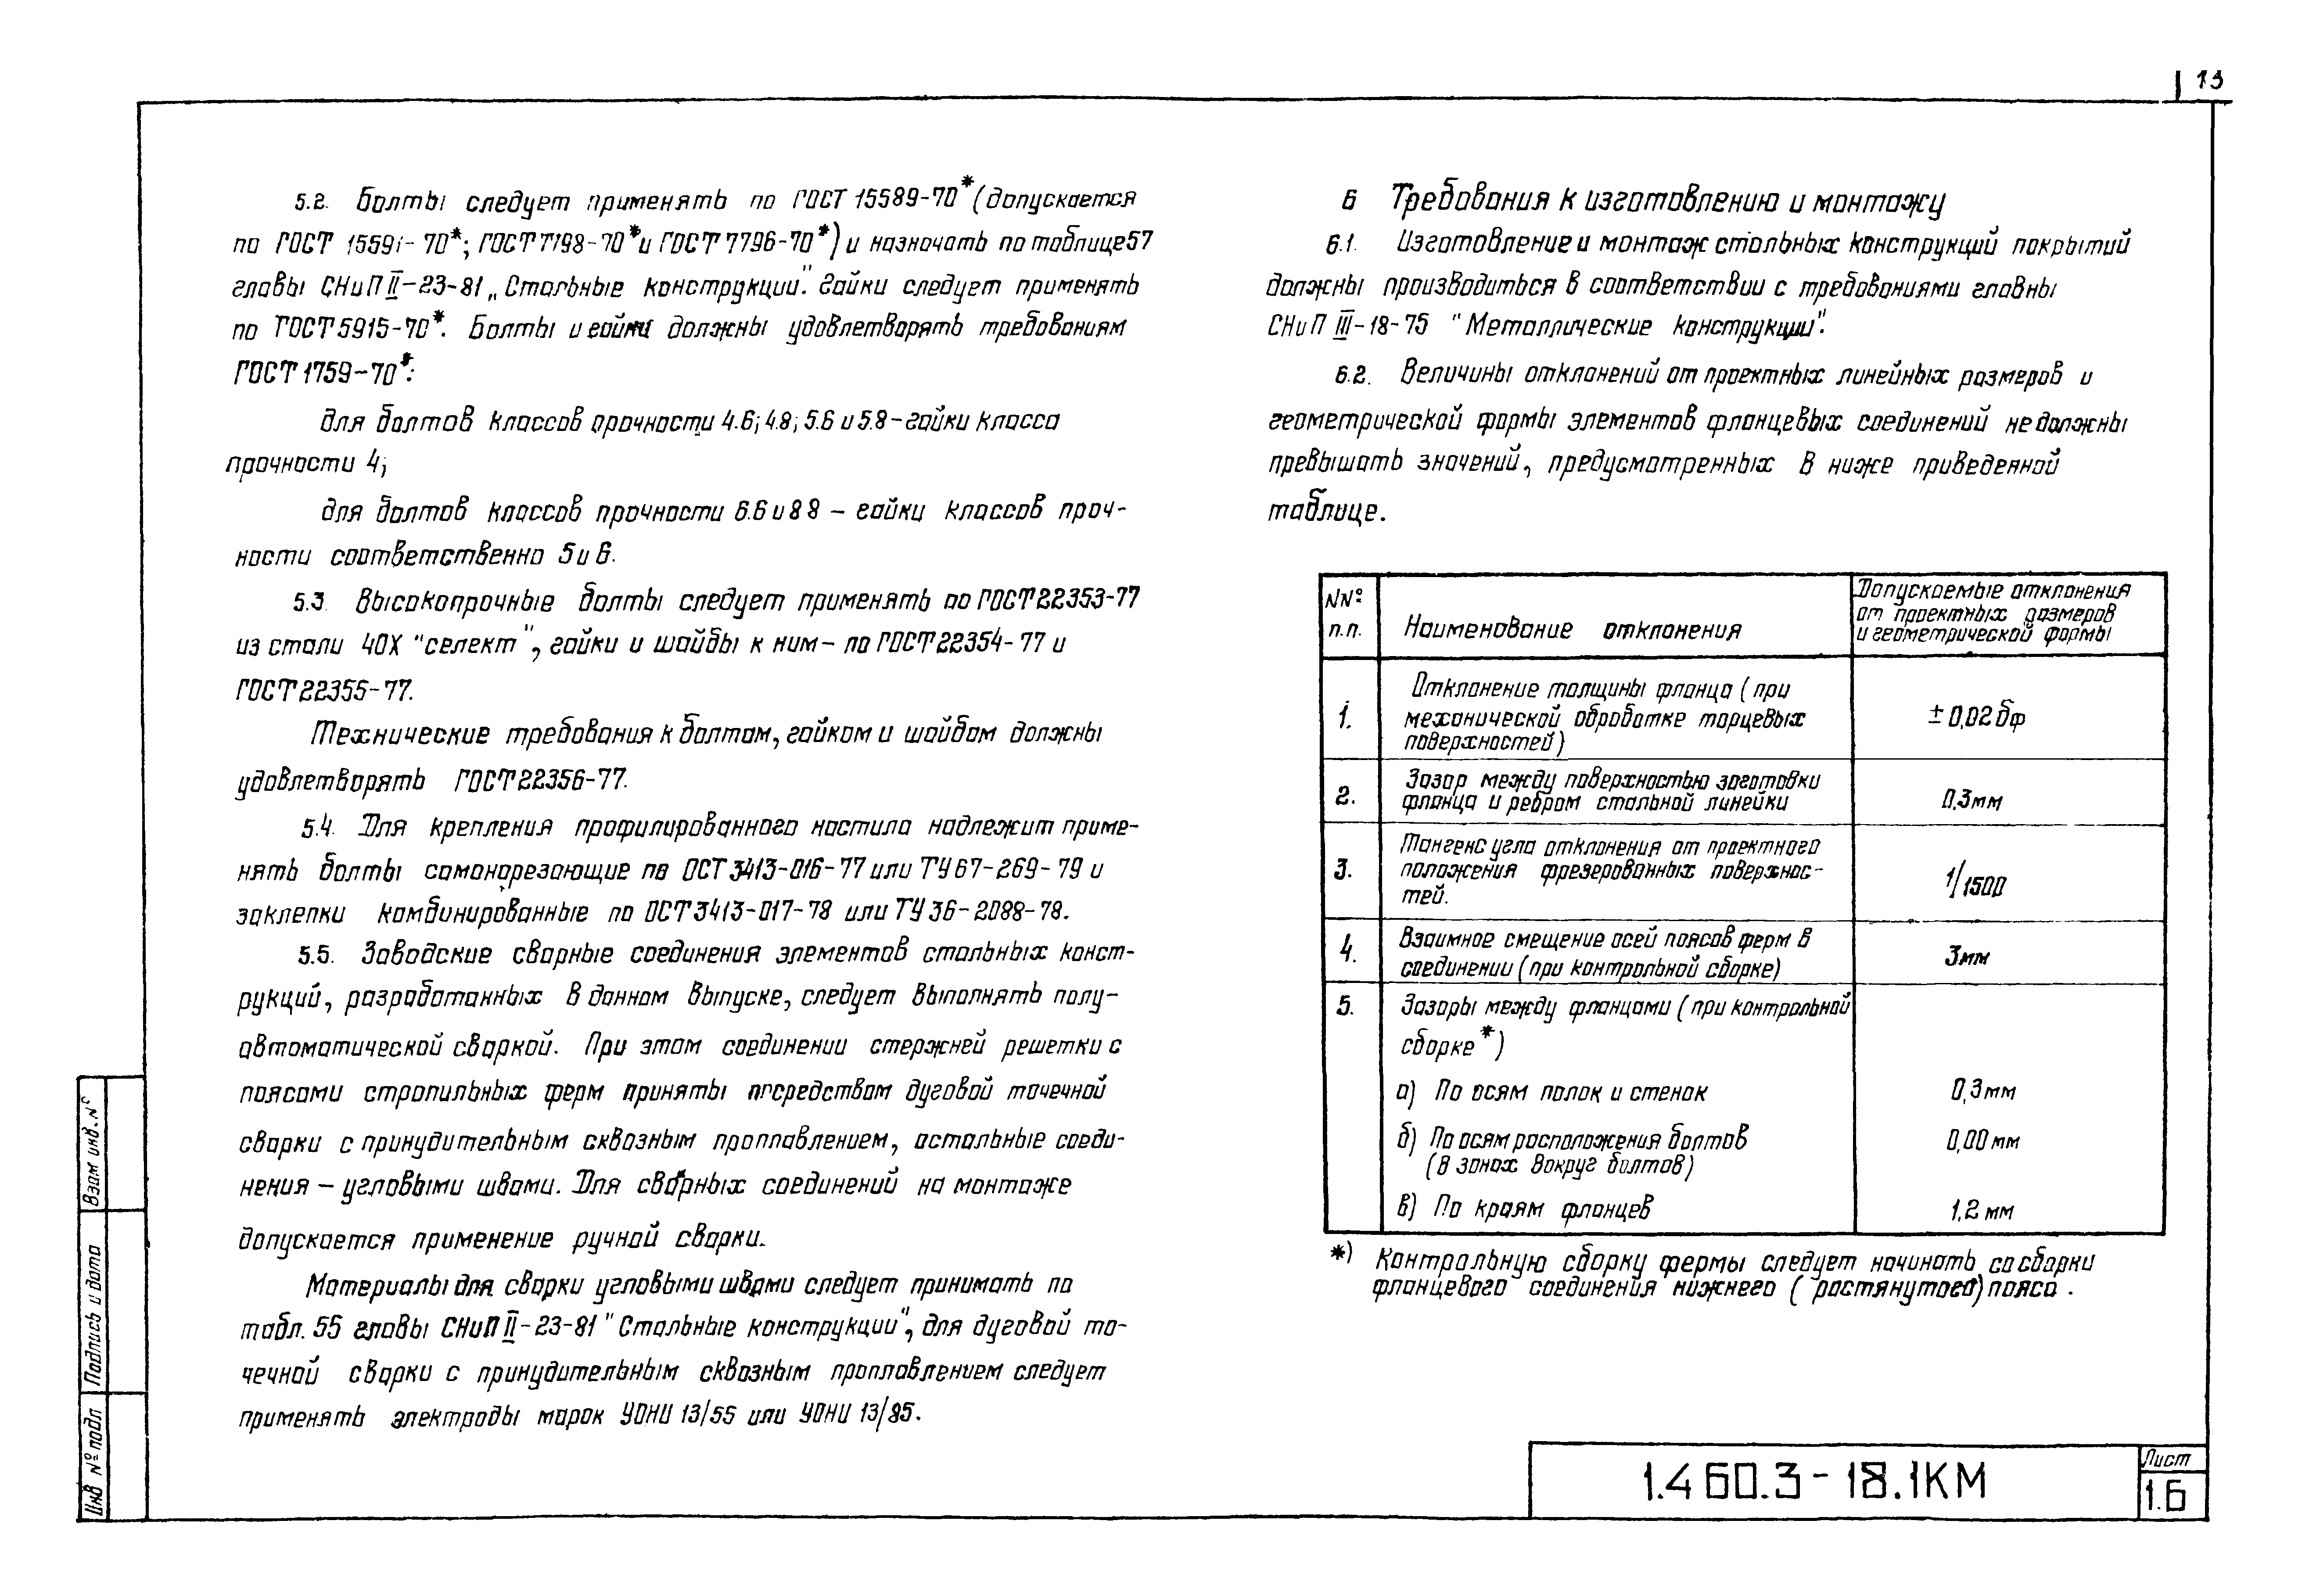 13
5.2. Болты следует применять по ГОСТ 15589-70* (допускается
по ГОСТ 15591-70*; ГОСТ 7798-70* и ГОСТ 7796-70*) и назначать по таблице 57
главы СНиП II-23-81 „Стальные конструкции". Гайки следует применять
по ГОСТ 5915-70*. Болты и гайки должны удовлетворять требованиям
ГОСТ 1759-70*:
для болтов классов прочности 4.6; 4.8; 5.6 и 5.8 - гайки класса
прочности 4;
для болтов классов прочности 6.6 и 8.8 - гайки классов проч-
ности соответственно 5 и 6.
5.3. Высокопрочные болты следует применять по ГОСТ 22353-77
из стали 40Х "селект", гайки и шайбы к ним - по ГОСТ 22354-77 и
ГОСТ 22355-77.
Технические требования к болтам, гайкам и шайбам должны
удовлетворять ГОСТ 22356-77.
5.4. Для крепления профилированного настила надлежит приме-
нять болты самонарезающие по ОСТ 3413-016-77 или ТУ 67-269-79 и
заклепки комбинированные по ОСТ 3413-017-78 или ТУ 36-2088-78.
5.5. Заводские сварные соединения элементов стальных конст-
рукций, разработанных в данном выпуске, следует выполнять полу-
автоматической сваркой. При этом соединении стержней решетки с
поясами стропильных ферм приняты посредством дуговой точечной
сварки с принудительным сквозным проплавлением, остальные соеди-
нения - угловыми швами. Для сварных соединений на монтаже
допускается применение ручной сварки.
Материалы для сварки угловыми швами следует принимать по
табл. 55 главы СНиП II-23-81 "Стальные конструкции", для дуговой то-
чечной сварки с принудительным сквозным проплавлением следует
применять электроды марок УОНИ 13/55 или УОНИ 13/85.
6 Требования к изготовлению и монтажу
6.1. Изготовление и монтаж стальных конструкций покрытий
должны производиться в соответствии с требованиями главны
СНиП III-18-75 "Металлические конструкции".
6.2. Величины отклонений от проектных линейных размеров и
геометрической формы элементов фланцевых соединений не должны
превышать значений, предусмотренных в ниже приведенной
таблице.
NNº п.п.
Наименование отклонения
Допускаемые отклонения
от проектных размеров
и геометрической формы
1.
Отклонение толщины фланца (при
механической обработке торцевых
поверхностей)
± 0,02 бф
2.
Зазор между поверхностью заготовки
фланца и ребром стальной линейки
0,3мм
3.
Тангенс угла отклонения от проектного
положения фрезерованных поверхнос-
тей.
1/1500
4.
Взаимное смещение осей поясов ферм в
соединении (при контрольной сборке)
3мм
5.
Зазоры между фланцами (при контрольной
сборке*)
а) По осям полок и стенок
0,3мм
б) По осям расположения болтов
(в зонах вокруг болтов)
0,00 мм
в) По краям фланцев
1,2 мм
*) Контрольную сборку фермы следует начинать со сборки
фланцевого соединения нижнего (растянутого) пояса.
Взам инв. Nº
Подпись и дата
Инв Nº подл
1.460.3-18.1КМ
Лист
1.6